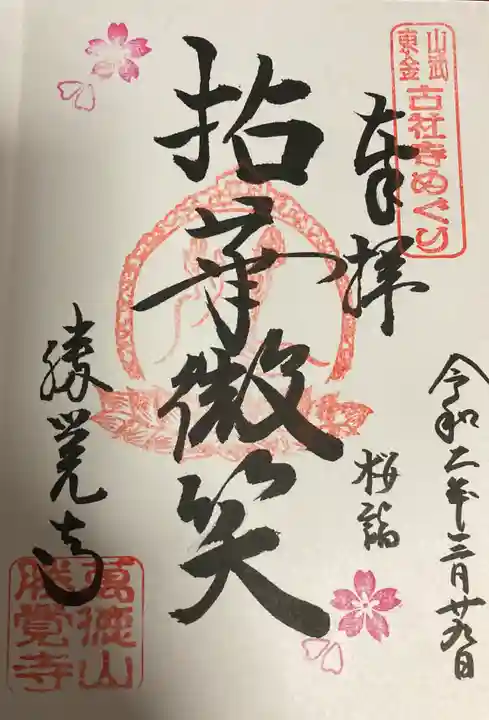 山武
東金
古社寺めぐり
奉拝
令和二年三月廿九日
桜詣
拈華微笑
勝覚寺
萬徳山
勝覚寺